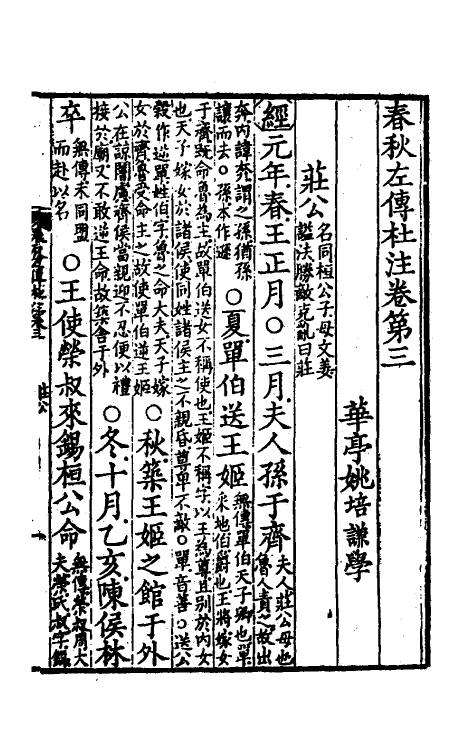 春秋左傳杜注卷第三
華亭姚培謙學
莊公 名同桓公子母文姜謚法勝敵克亂曰莊
經元年春王正月○三月夫人孫于齊 夫人莊公母也魯人責之故出
奔內諱奔謂之孫猶孫讓而去○孫本作遜 ○夏單伯送王姬 無傳單伯天子卿也單采地伯爵也王將嫁女
于齊既命魯為主故單伯送女不稱使也王姬不稱字以王為尊且別於內女也天子嫁女於諸侯使同姓諸侯主之不親昏尊卑不敵○單音善○送公
穀作逆單姓伯字魯之命大夫天子嫁女於齊魯受命主之故使單伯逆王姬 ○秋築王姬之館于外
公在諒闇慮齊侯當親迎不忍便以禮接於廟又不敢逆王命故築舍于外 ○冬十月乙亥陳侯林
卒 無傳未同盟而赴以名 ○王使榮叔來錫桓公命 無傳榮叔周大夫榮氏叔字錫
莊公